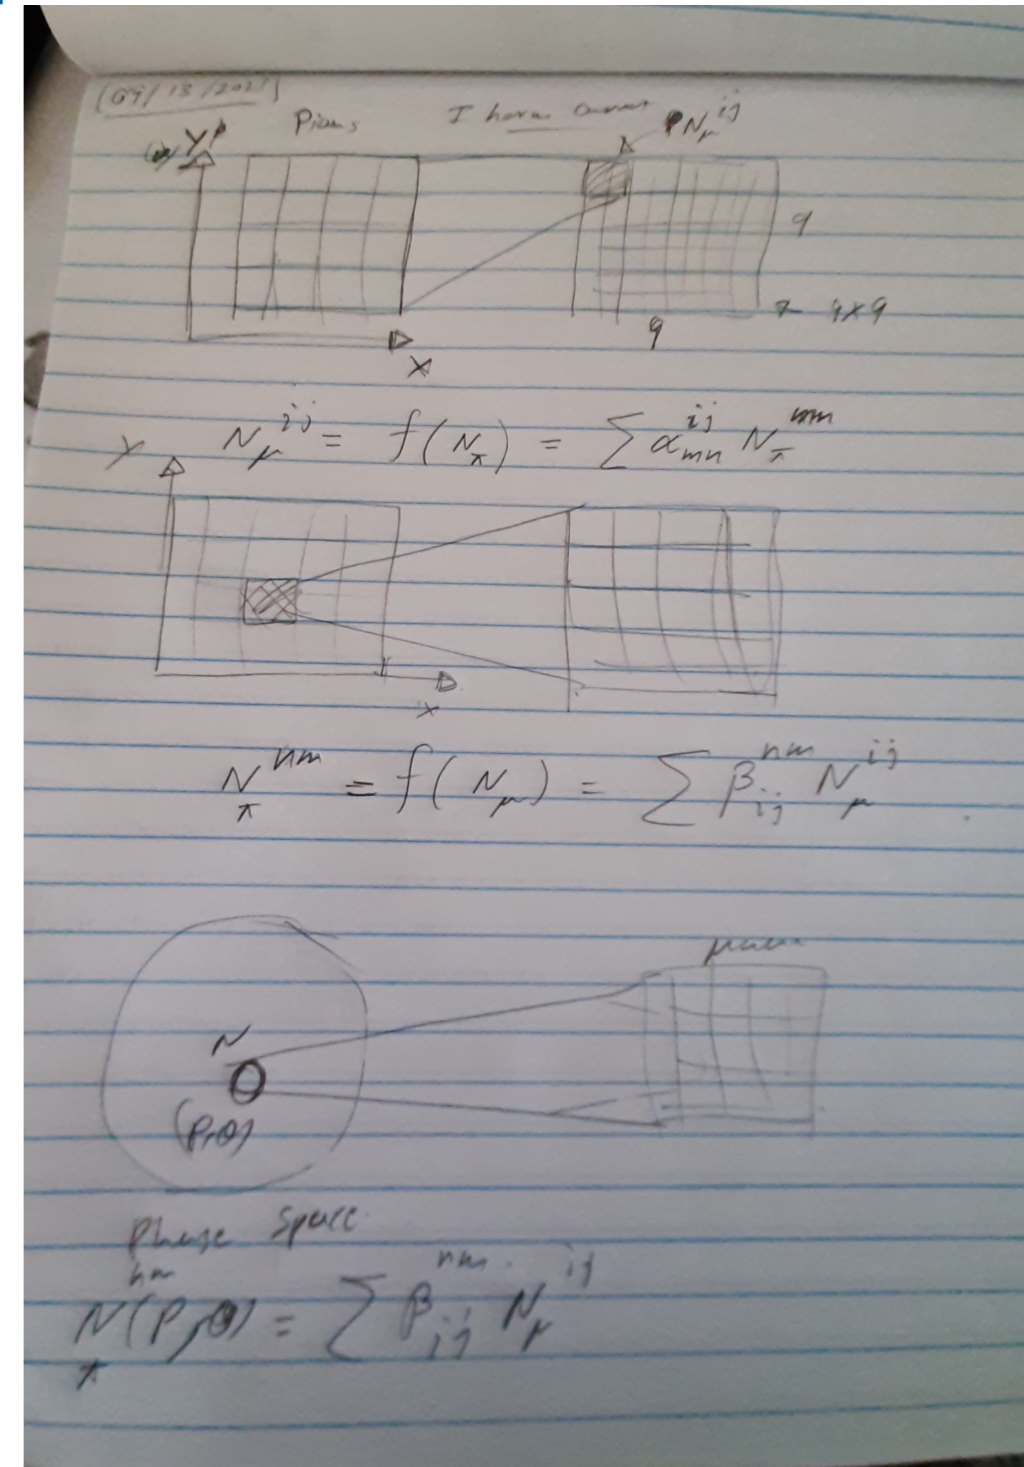 [09/13/2021]
Pions I horn current PN_μ^{ij}
Y
9
9 9x9
X
N_μ^{ij} = f(N_π) = ∑ α_{mn}^{ij} N_π^{mn}
Y
X
N_π^{nm} = f(N_μ) = ∑ β_{ij}^{nm} N_μ^{ij}
N
(P,θ)
Phase space
N_π^{nm}(P,θ) = ∑ β_{ij}^{nm} N_μ^{ij}